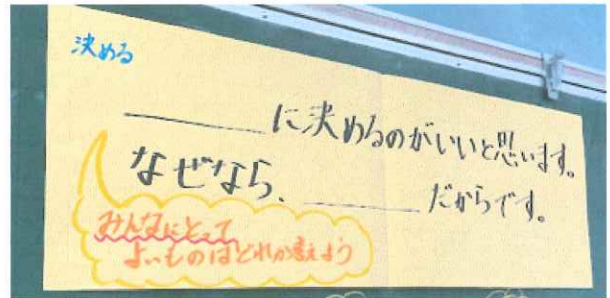 決める
______に決めるのがいいと思います。
なぜなら、______だからです。
みんなにとって
よいものはどれか考えよう